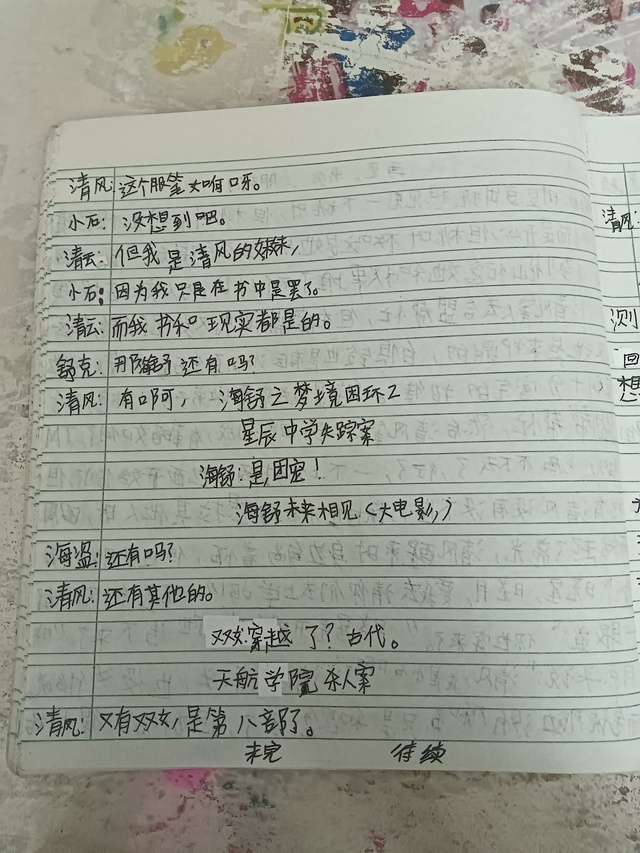 清风:这个服笔女咱呀。
小石:没想到吧。
清云:但我是清风的妹妹,
小石:因为我只是在书中是罢了。
清云:而我书和现实都是的。
舒克:那海舒还有吗?
清风:有啊,海舒之梦境困环2
星辰中学失踪案
海舒:是团宠!
海舒未来相见(大电影)
海盗:还有吗?
清风:还有其他的。
双女穿越了?古代。
天航学院杀人案
清风:又有双女,是第八部了。
未完 待续
清风:
测
回
想